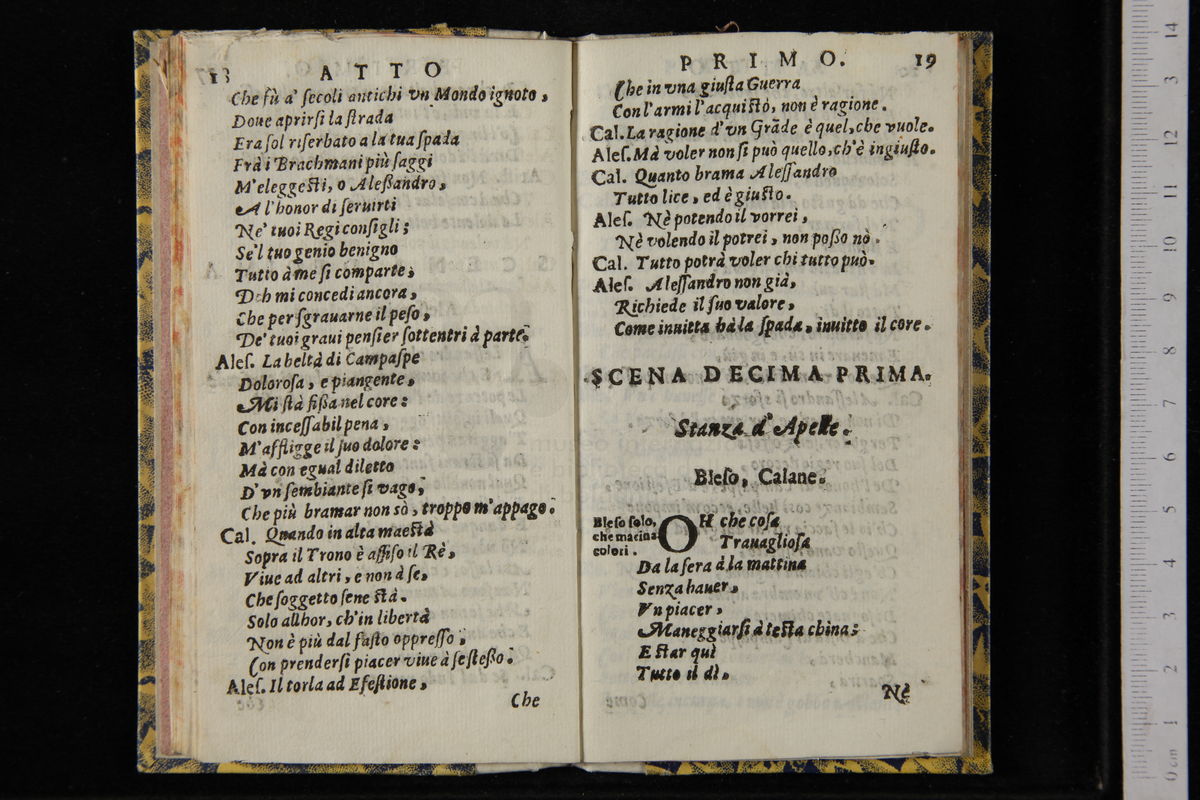 18 ATTO
Che fù a' ſecoli antichi vn Mondo ignoto,
Doue aprirſi la ſtrada
Era ſol riſerbato a la tua ſpada
Frà i Brachmani più ſaggi
M'eleggeſti, o Aleßandro,
A l'honor di ſeruirti
Ne' tuoi Regi conſigli;
Se'l tuo genio benigno
Tutto à me ſi comparte;
Deh mi concedi ancora,
Che per ſgrauarne il peſo,
De' tuoi graui penſier ſottentri à parte.
Aleſ. La beltà di Campaſpe
Doloroſa, e piangente,
Mi ſtà fißa nel core:
Con inceſſabil pena,
M'affligge il ſuo dolore:
Mà con egual diletto
D'vn ſembiante ſi vago,
Che più bramar non sò, troppo m'appago.
Cal. Quando in alta maeſtà
Sopra il Trono è aſſiſo il Rè,
Viue ad altri, e non à ſe,
Che ſoggetto ſene ſtà.
Solo allhor, ch'in libertà
Non è più dal faſto oppreſſo,
Con prenderſi piacer viue à ſe ſteßo.
Aleſ. Il torla ad Efeſtione,
Che
PRIMO. 19
Che in vna giuſta Guerra
Con l'armi l'acquiſtò, non è ragione.
Cal. La ragione d'vn Grãde è quel, che vuole.
Aleſ. Mà voler non ſi può quello, ch'è ingiuſto.
Cal. Quanto brama Aleſſandro
Tutto lice, ed è giuſto.
Aleſ. Nè potendo il vorrei,
Nè volendo il potrei, non poßo nò.
Cal. Tutto potrà voler chi tutto può.
Aleſ. Aleſſandro non già,
Richiede il ſuo valore,
Come inuitta hà la ſpada, inuitto il core.
SCENA DECIMA PRIMA.
Stanza d'Apelle.
Bleſo, Calane.
Bleſo ſolo,
che macina
colori.
OH che coſa
Trauaglioſa
Da la ſera à la mattina
Senza hauer,
Vn piacer,
Maneggiarſi à teſta china;
E ſtar quì
Tutto il dì,
Nè